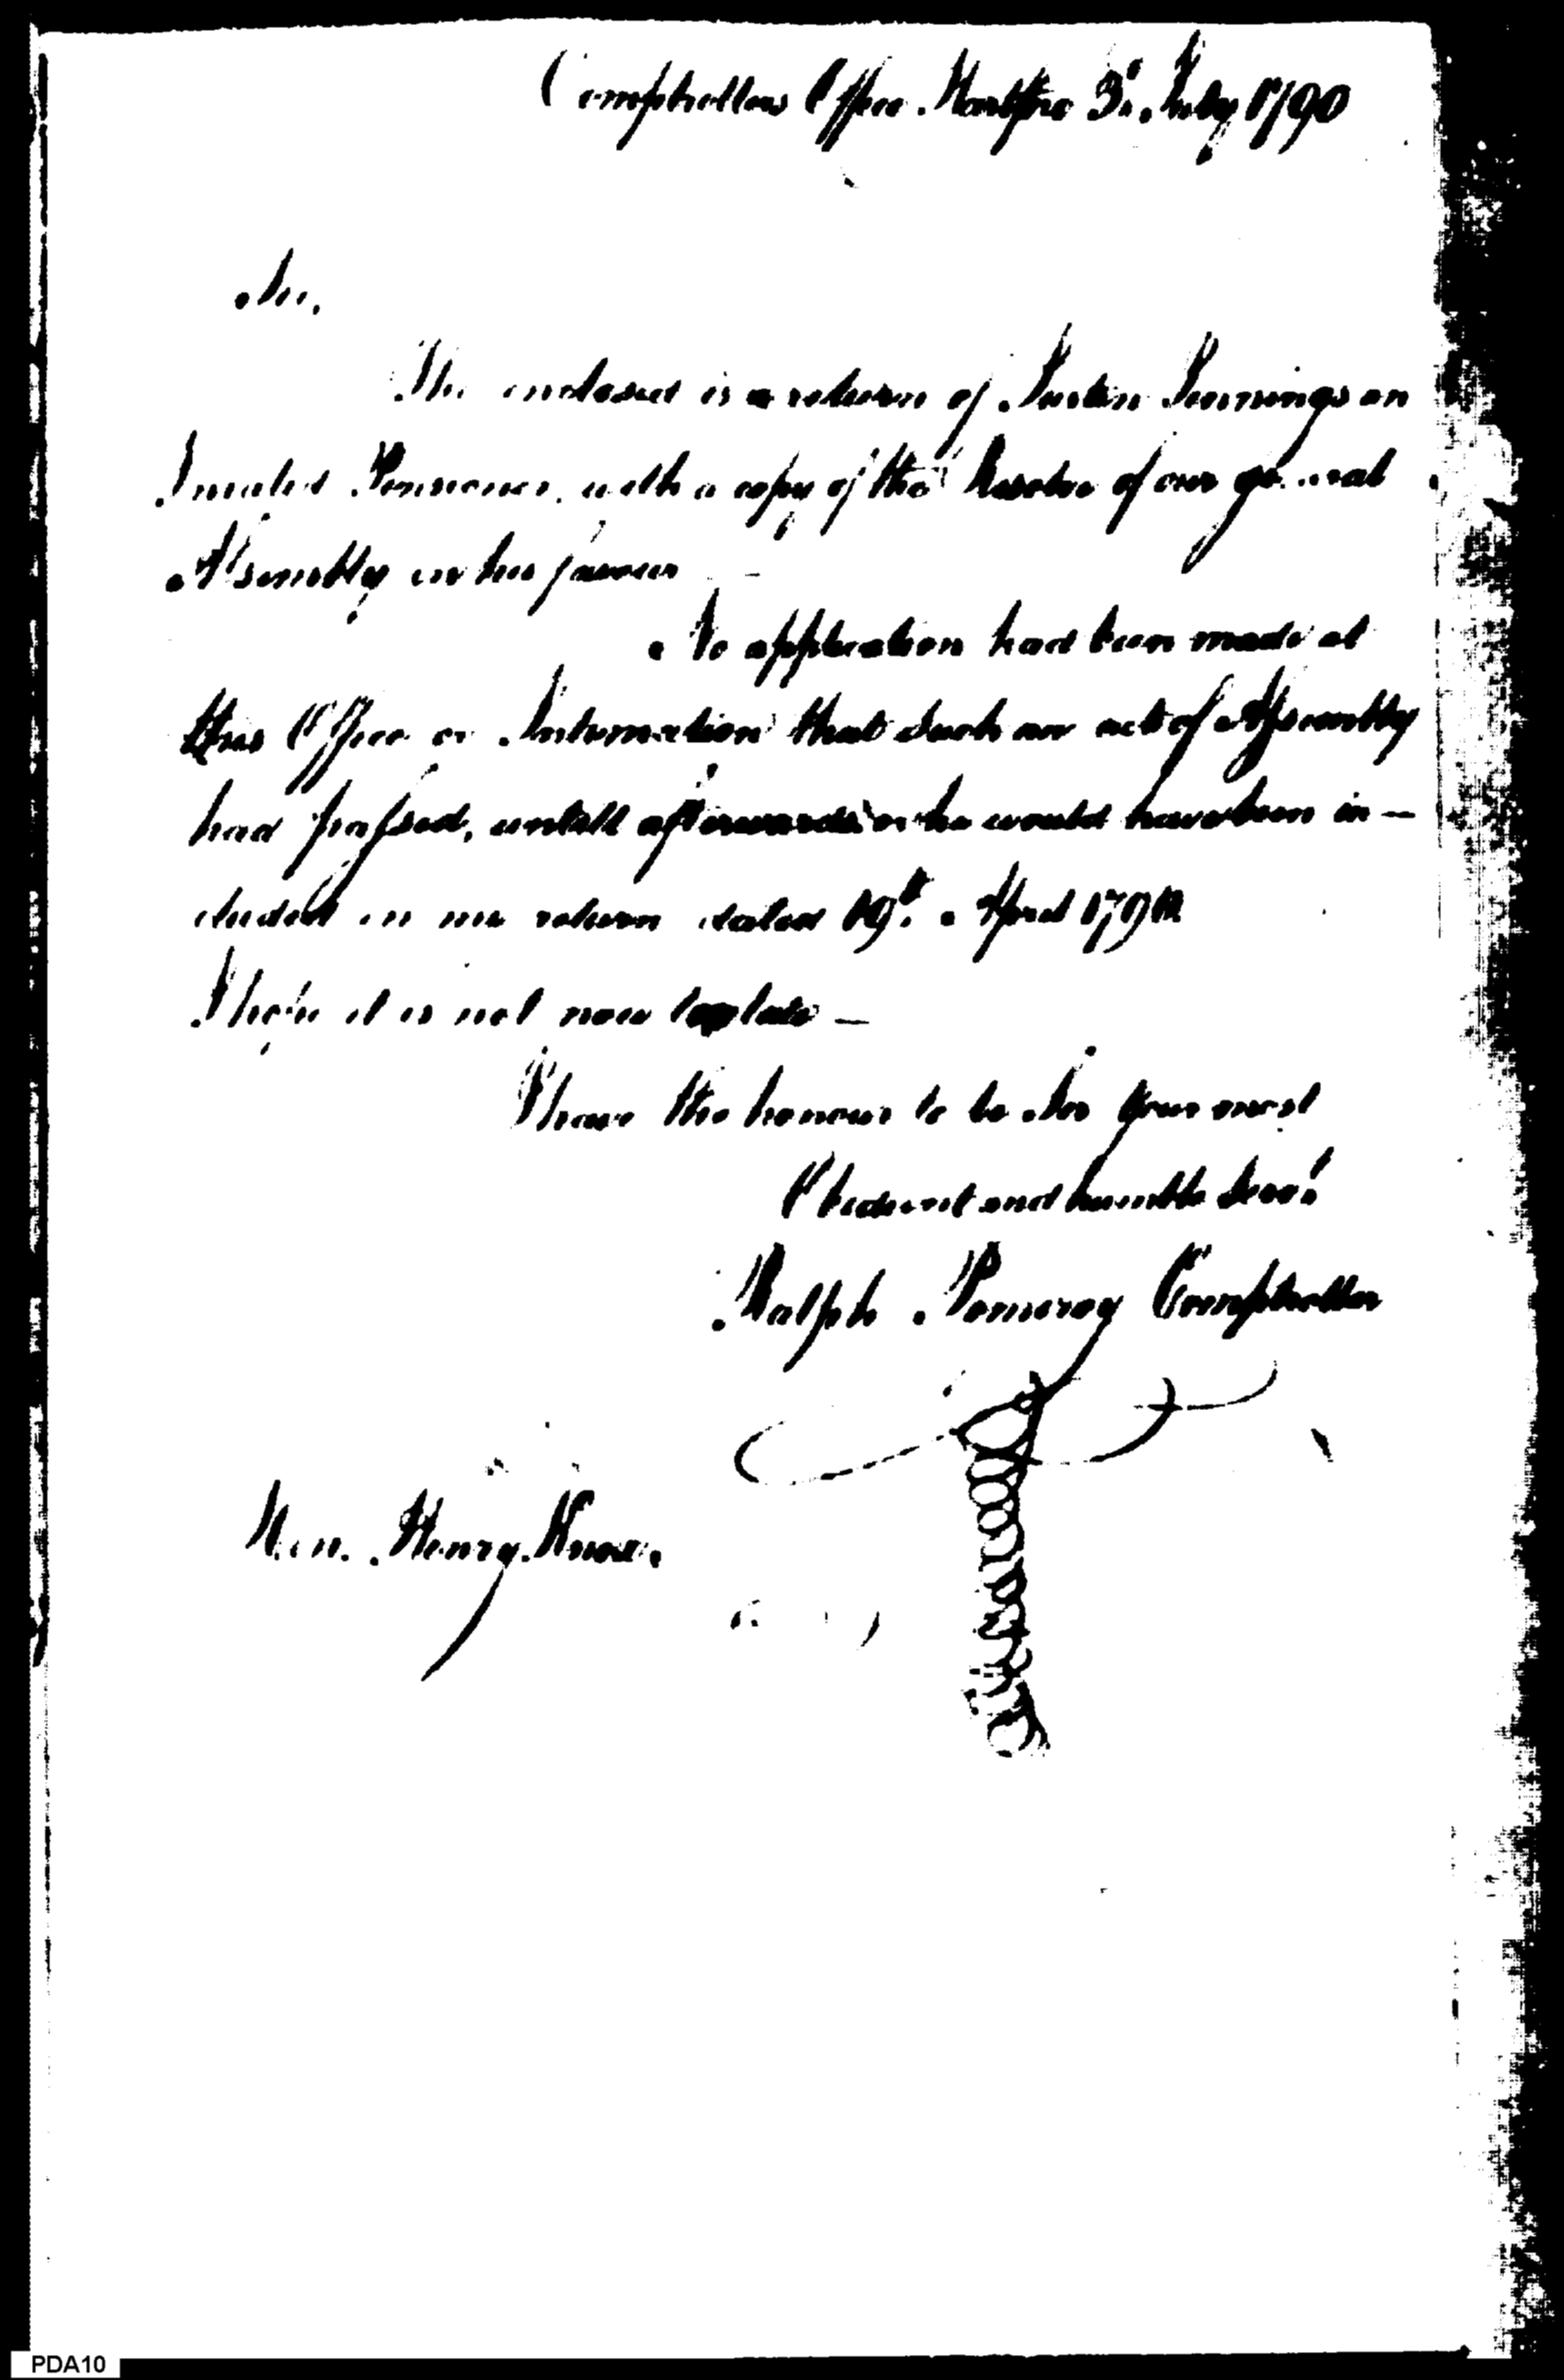 Comptrollers Office Hartford 3d. July 1790
Sir,
The enclosed is a return of Justin Jennings an
Invalid Pensioner, with a copy of the Resolve of our general
Assembly in his favour
No application had been made at
this Office or Intimation that such an act of Assembly
had passed, untill afterwards or he would have been in—
cluded in my return dated 19th. April 1790
I hope it is not now too late —
I have the honour to be Sir your most
Obedient and humble Servt
Ralph Pomeroy Comptroller
Hon. Henry Knox.
PDA10